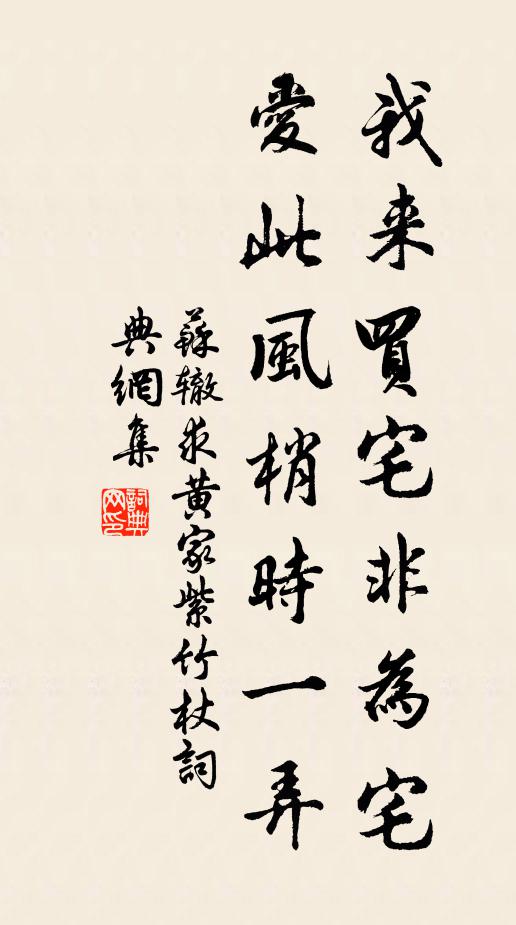 我来買宅非為宅
愛此風梢時一弄
蘇辙求黄家紫竹杖詞
典網集
詞典
网印